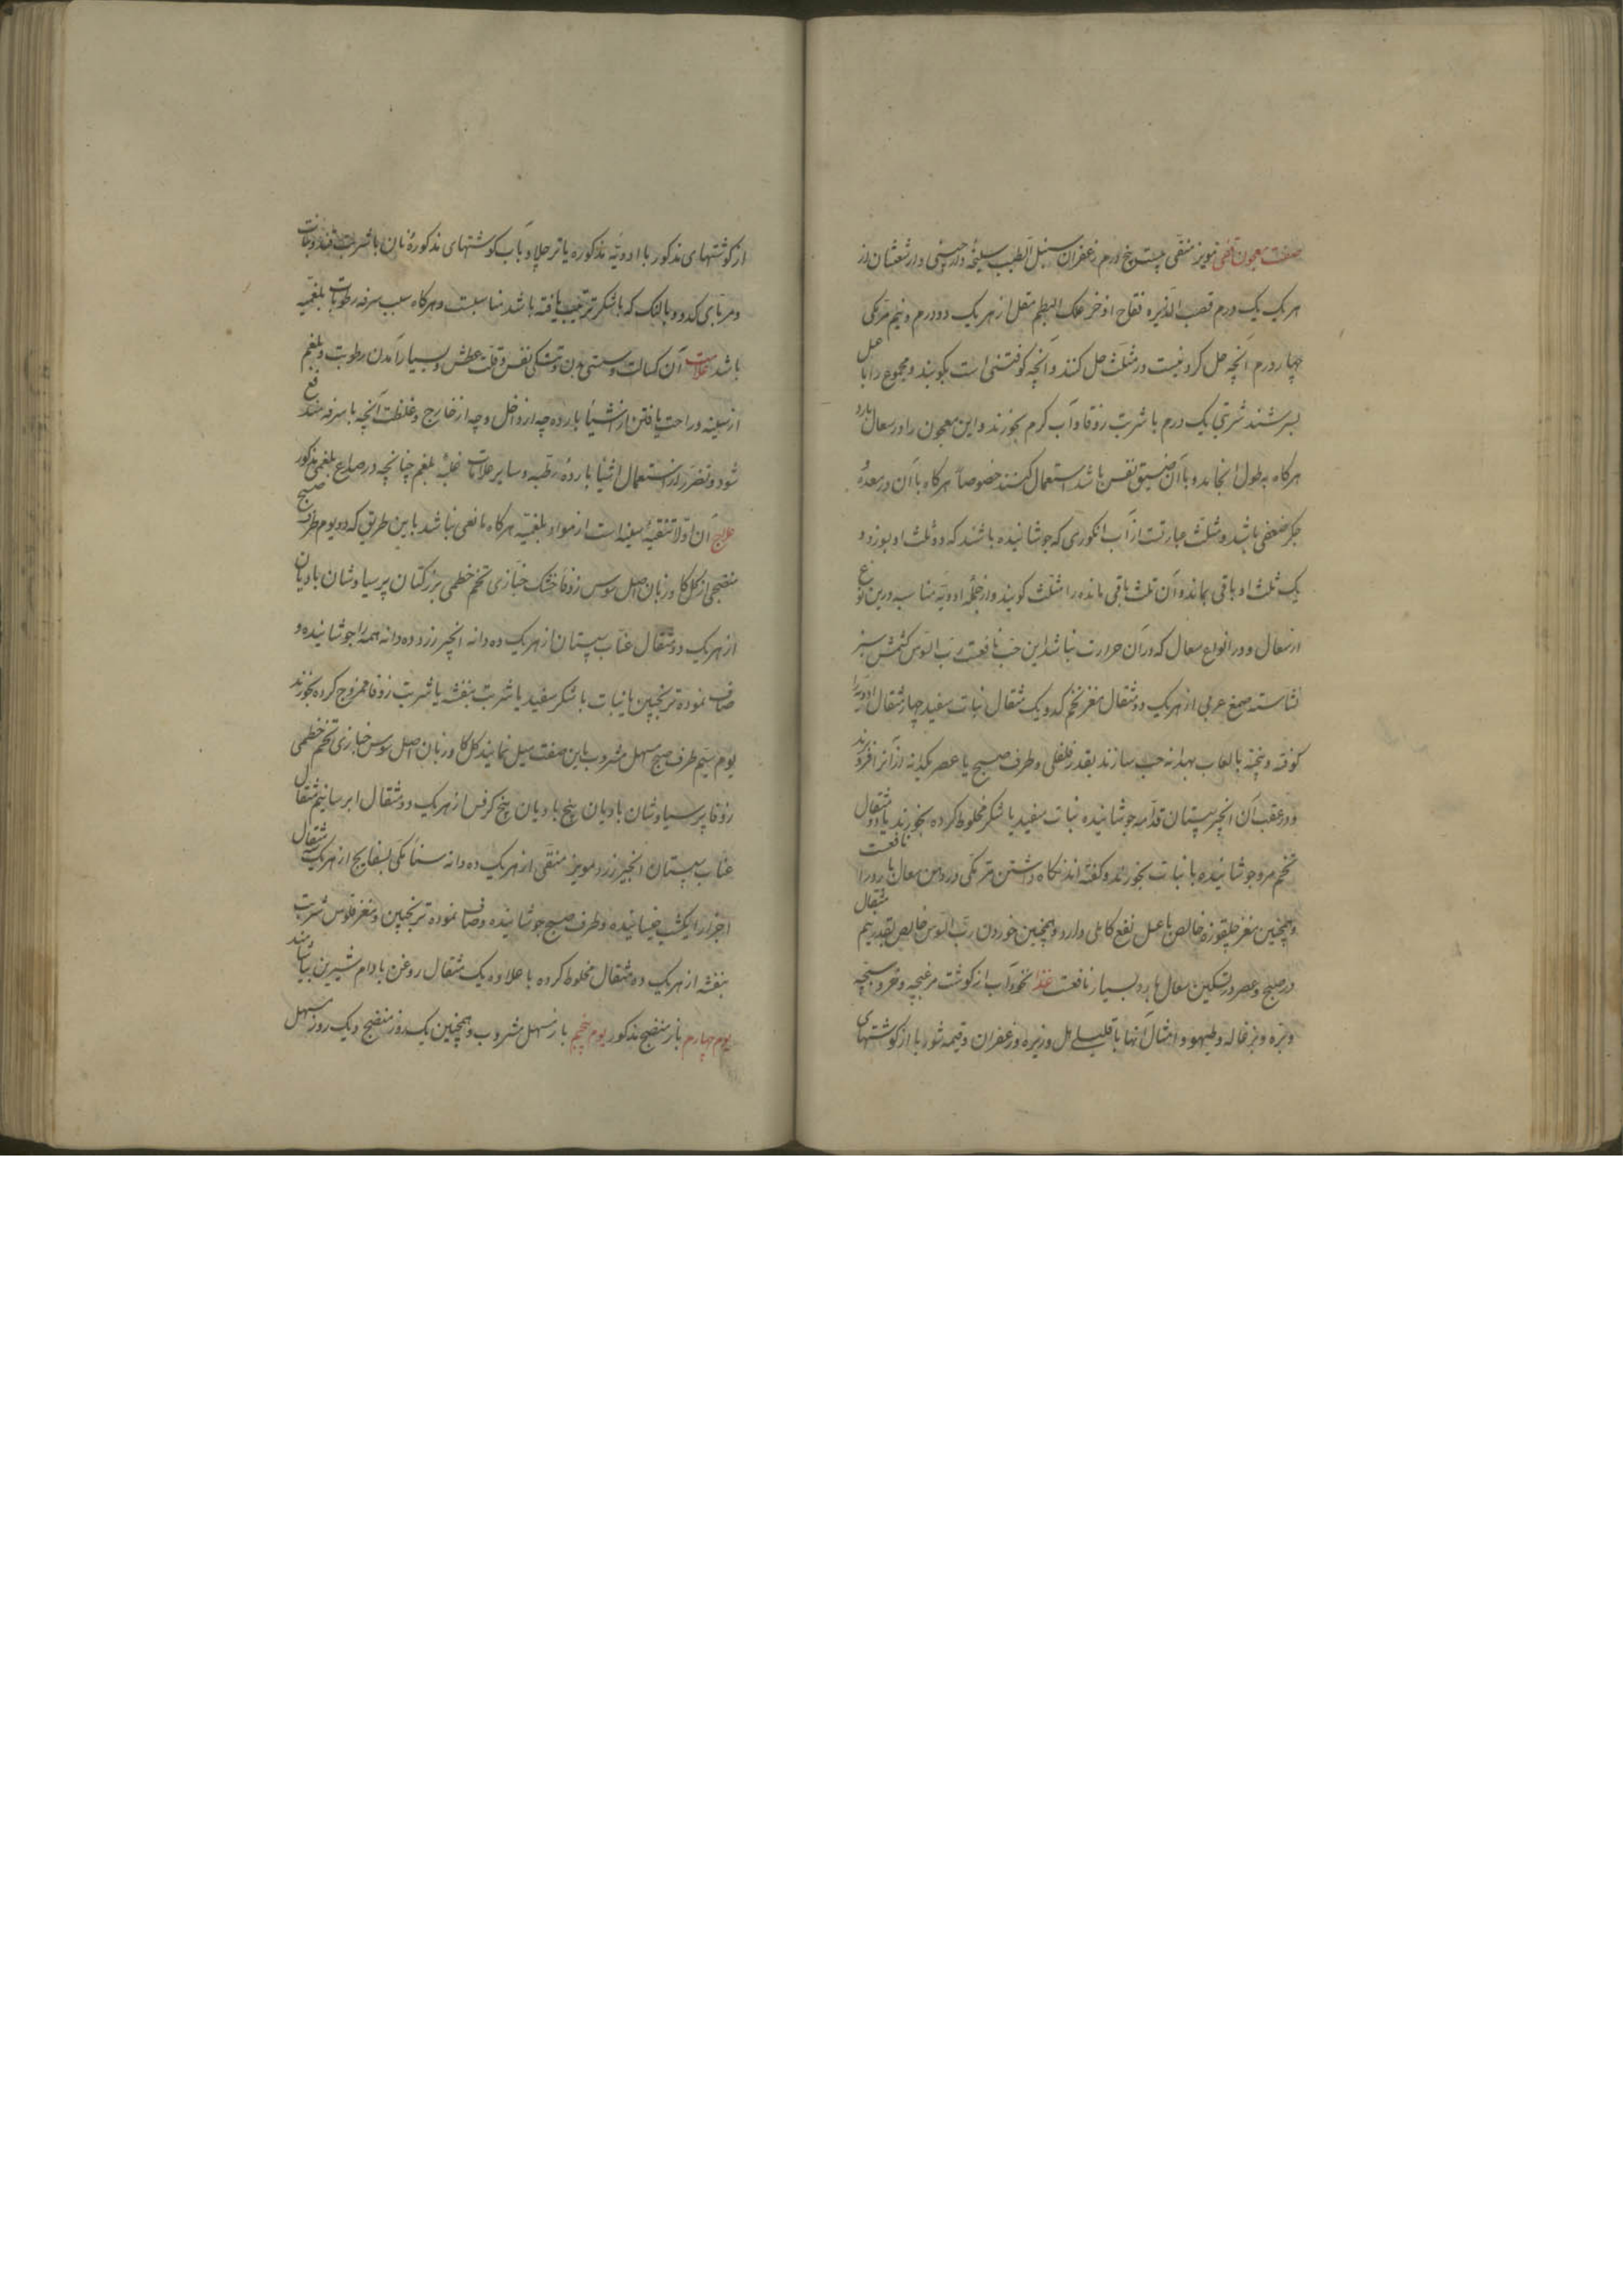 صفت معجون قفی مویز منقی بیست و پنج درم زعفران سنبل الطیب سلیخه دارچینی دارشعشان از
هر یک یک درم قصب الذریره فقاح اذخر علک البطم مقل از هر یک دو درم و نیم مر مکی
چهار درم آنچه حل کردنیست در مثلث حل کنند و آنچه کوفتنی است بکوبند و مجموع را با عسل
بسرشند شربتی یک درم با شربت زوفا و آب کرم بخورند و این معجون را در سعال بارد
هرکاه بطول انجامد و با آن ضیق نفس باشد استعمال کنند خصوصاً هرکاه با آن در معده و
جکر ضعفی باشد و مثلث عبارتست از آب انکوری که جوشانیده باشند که دو ثلث او بسوزد و
یک ثلث او باقی بماند و آن ثلث باقی مانده را مثلث کویند و از جمله ادویه مناسبه درین نوع
از سعال و در انواع سعال که در آن حرارت نباشد این حب نافعست رب السوس کشمش سبز
نشاسته صمغ عربی از هر یک دو مثقال مغز تخم کدو یک مثقال نبات سفید چهار مثقال ادویه را
کوفته و بیخته با لعاب بهدانه حب سازند بقدر فلفلی و طرف صبح یا عصر یکدانه از آنرا فرو برند
و در عقب آن انجیر سپستان قدامه جوشانیده نبات سفید یا شکر مخلوط کرده بخورند یا دو مثقال
تخم مرو جوشانیده با نبات بخورند و کفته‌اند نکاه داشتن مر مکی در دهن سعال بارد را نافعست
و همچنین مغز چلقوزه خالص با عسل نفع کاملی دارد و همچنین خوردن رب السوس خالص بقدر نیم مثقال
در صبح و عصر در تسکین سعال بارد بسیار نافعست غذا نخودآب از کوشت مرغبچه و خروسبچه
و بره و بزغاله و طیهو و امثال آنها با قلیلی هل و زیره و زعفران و قیمه شوربا از کوشتهای
از کوشتهای مذکور با ادویه مذکوره یا تر چلاو با آب کوشتهای مذکوره نان با شربت قند و نبات
و مربای کدو و بالنک که با شکر ترتیب یافته باشد مناسبست و هرکاه سبب سرفه رطوبات بلغمیه
باشد علامت آن کسالت و سستی بدن و تنکی نفس و قلت عطش و بسیار آمدن رطوبت و بلغم
از سینه و راحت یافتن از اشیاء بارده چه از داخل و چه از خارج و غلظت آنچه با سرفه مندفع
شود و تضرر از استعمال اشیاء بارده رطبه و سایر علامات غلبه بلغم چنانچه در صداع بلغمی مذکور
علاج آن اولا تنقیه سینه است از مواد بلغمیه هرکاه مانعی نباشد باین طریق که دو یوم طرف صبح
منضجی از کل کاو زبان اصل سوس زوفاء خشک خبازی تخم خطمی بزر کتان پرسیاوشان بادیان
از هر یک دو مثقال عناب سپستان از هر یک ده دانه انجیر زرد ده دانه همه را جوشانیده و
صاف نموده ترنجبین یا نبات با شکر سفید یا شربت بنفشه یا شربت زوفا ممزوج کرده بخورند
یوم سیم طرف صبح مسهل مشروب باین صفت میل نمایند کل کاو زبان اصل سوس خبازی تخم خطمی
زوفا پرسیاوشان بادیان بیخ بادیان بیخ کرفس از هر یک دو مثقال ایرسا نیم مثقال
عناب سپستان انجیر زرد مویز منقی از هر یک ده دانه سناء مکی بسفایج از هر یک مثقال
اجزا را یکشب خیسانیده و طرف صبح جوشانیده و صاف نموده ترنجبین و مغز فلوس شربت
بنفشه از هر یک ده مثقال مخلوط کرده با علاوه یک مثقال روغن بادام شیرین بیاشامند
یوم چهارم باز منضج مذکور یوم پنجم باز مسهل مشروب و همچنین یک روز منضج و یک روز مسهل